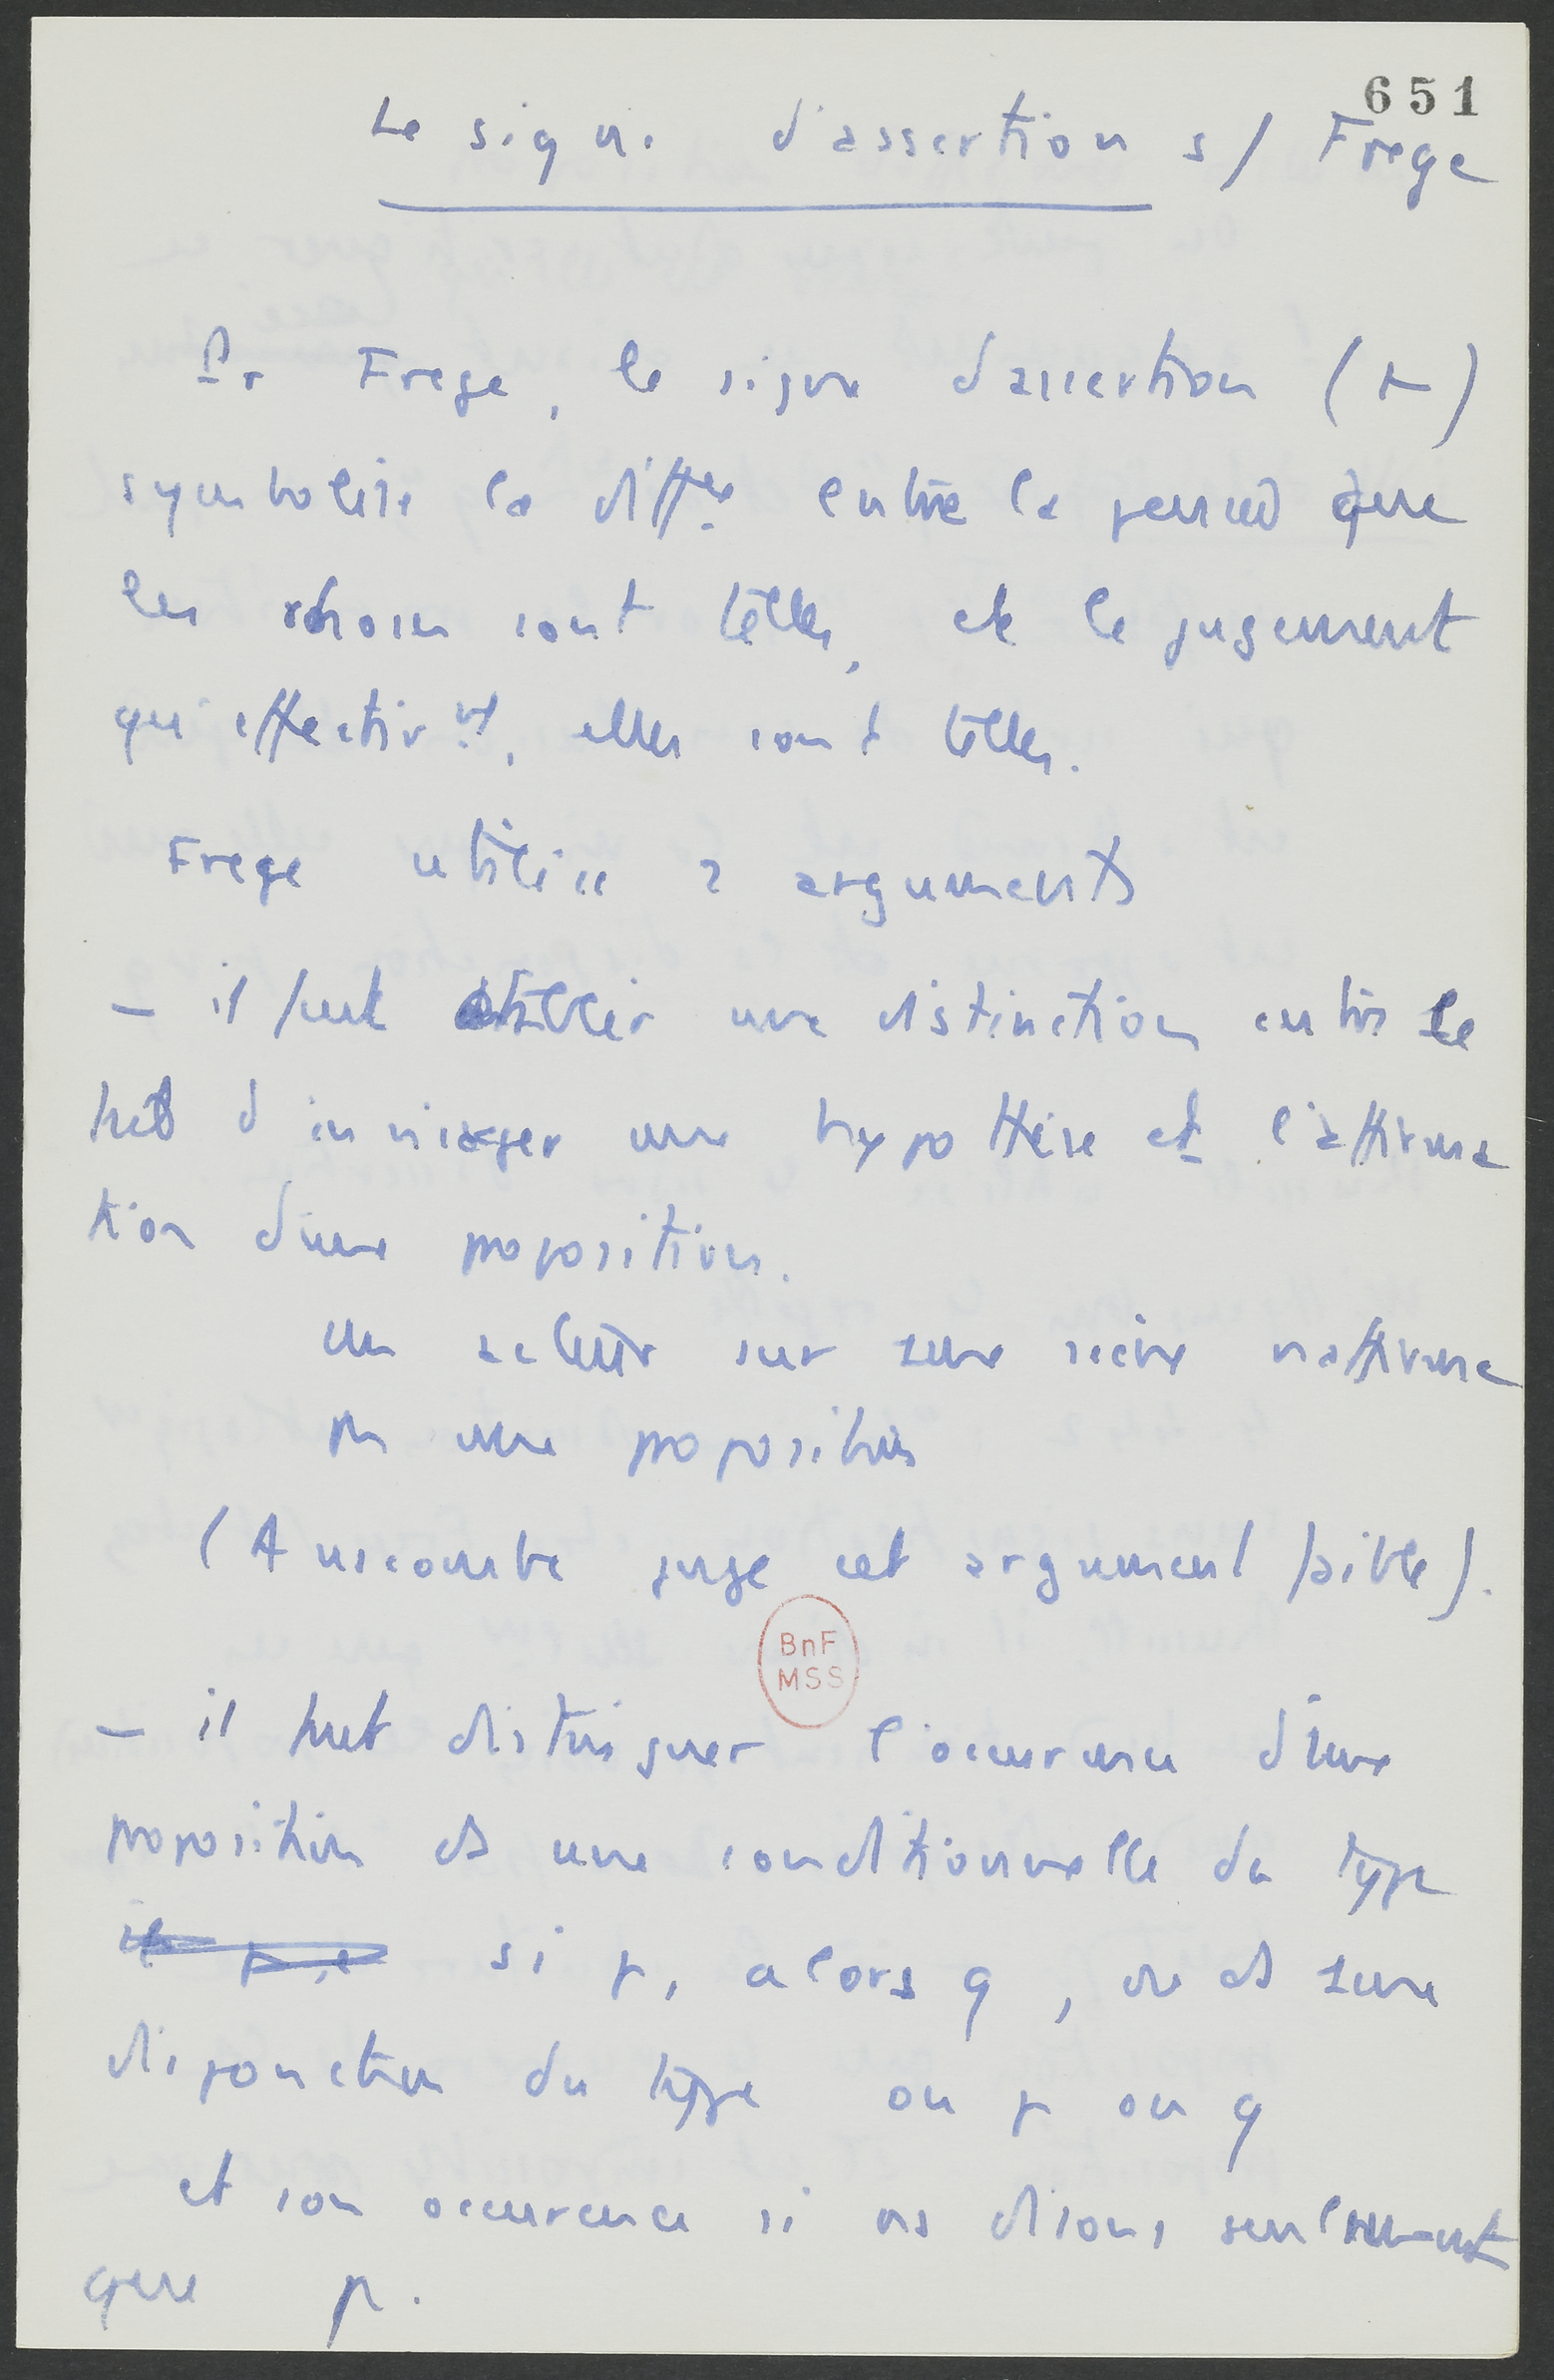 651
Le signe d'assertion s/ Frege
Pr Frege, le signe d'assertion (⊢)
symbolise la diffce entre la pensée que
les choses sont telles, et le jugement
qu'effectivt, elles sont telles.
Frege utilise 2 arguments
- il faut établir une distinction entre le
fait d'envisager une hypothèse et l'affirma
tion d'une proposition.
Un acteur sur une scène n'affirme
pas une proposition
(Anscombe juge cet argument faible).
BnF
MSS
- il faut distinguer l'occurrence d'une
proposition ds une conditionnelle du type
si p, alors q, ou ds une
disjonction du type ou p ou q
et son occurence si ns disons seulement
que p.